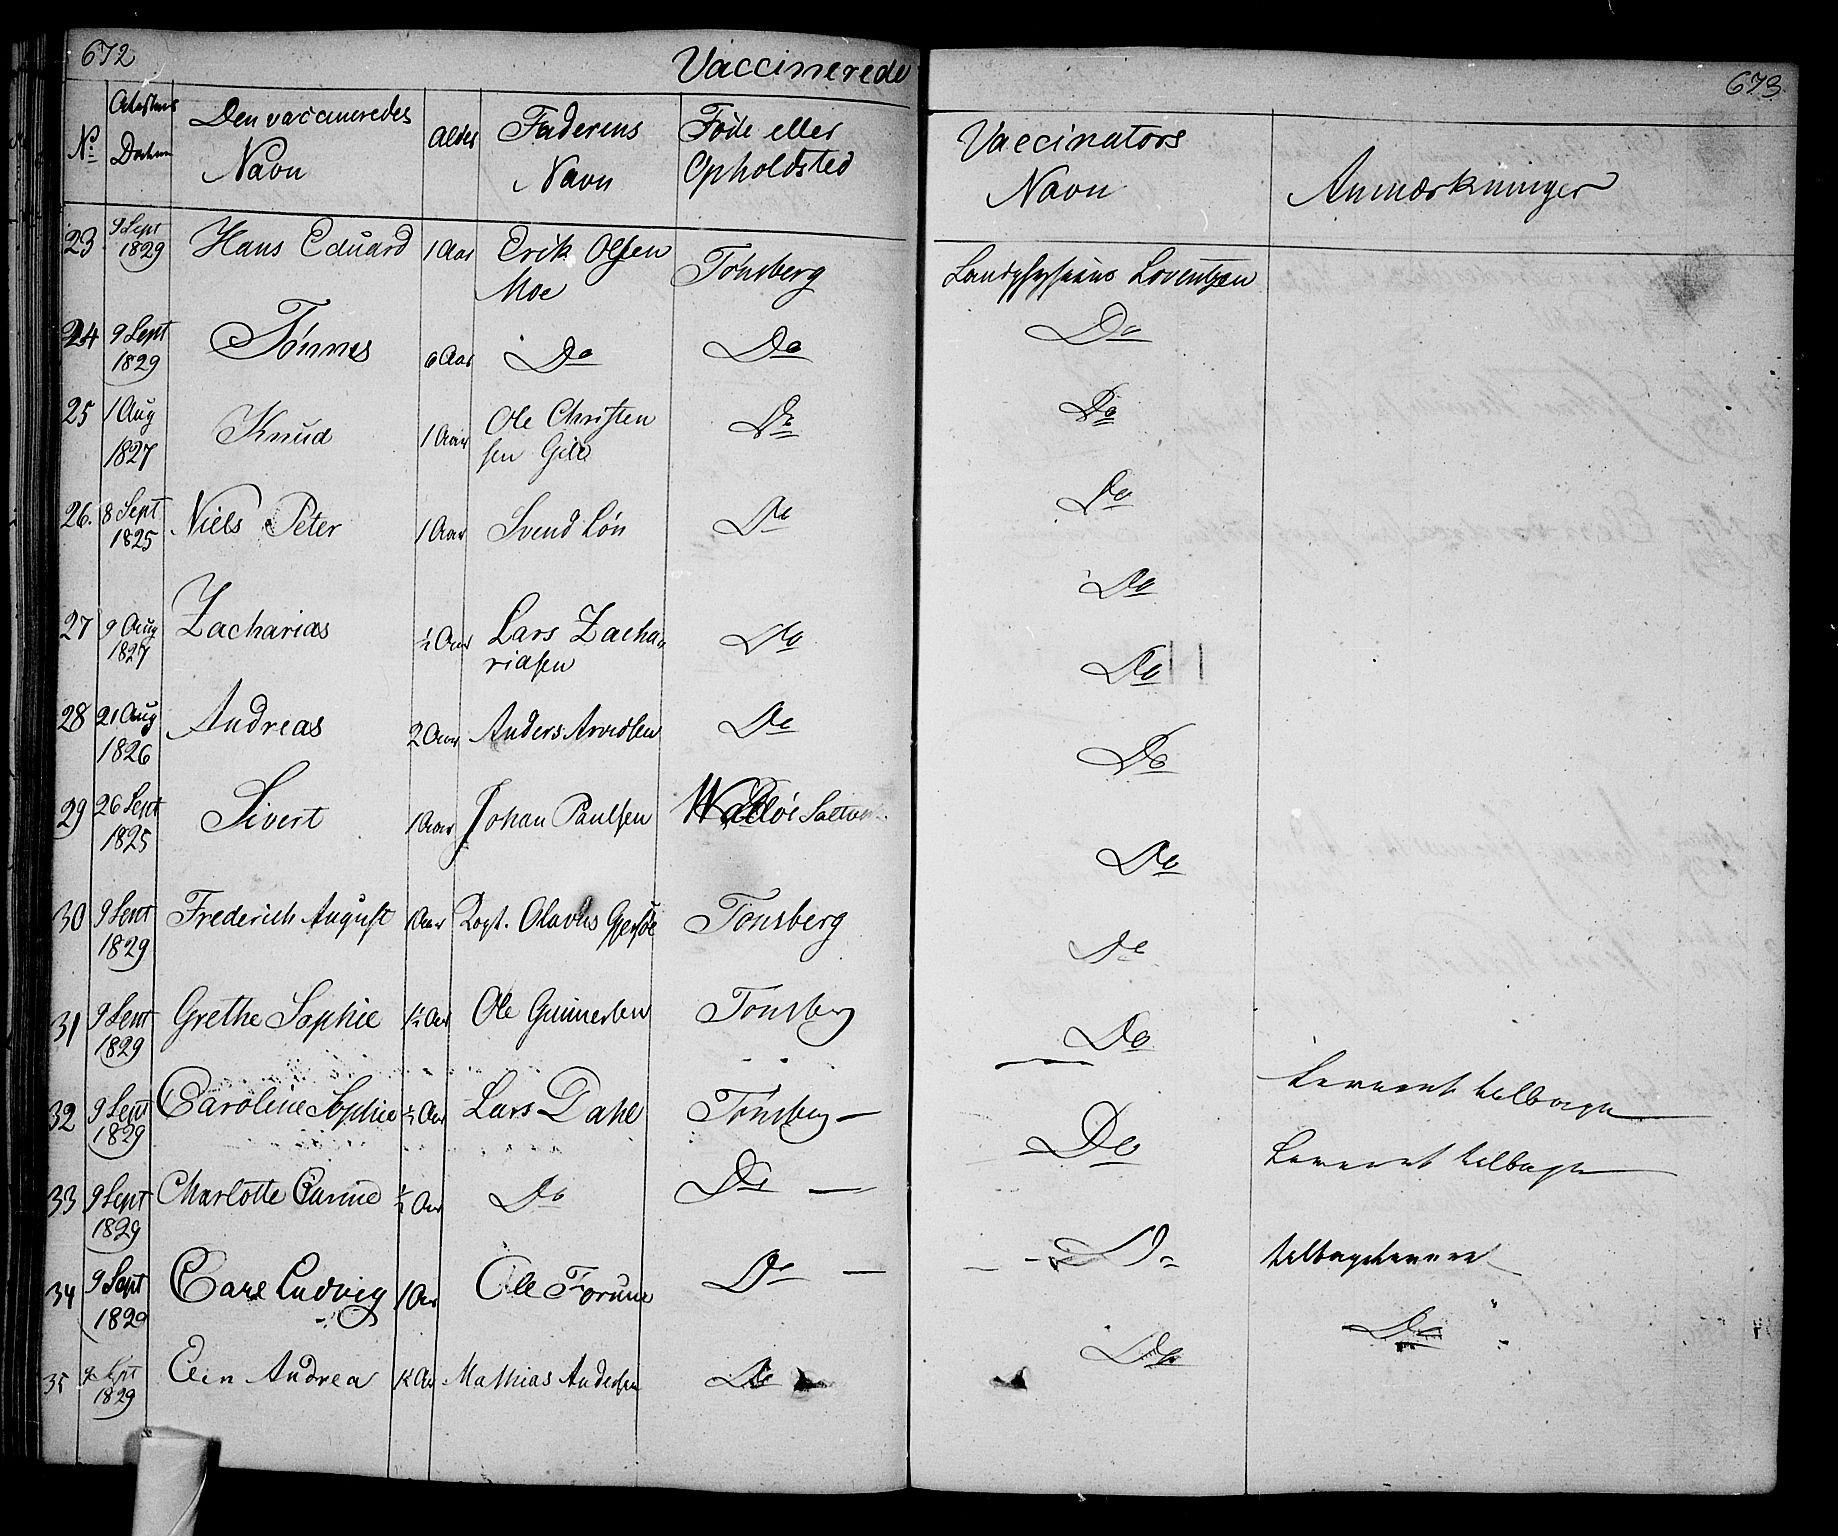 672
Vaccinerede
673
No Attestens Datum
Den vaccineredes Navn
Alder
Faderens Navn
Føde eller Opholdsted
Vaccinators Navn
Anmærkninger
23 9 Sept 1829 Hans Eduard 1 Aar Erik Olssen Moe Tønsberg Landphysicus Lorentzen
24 9 Sept 1829 Tønnes 6 Aar Do Do Do
25 1 Aug 1827 Knud 1 Aar Ole Christensen Do Do
26. 8 Sept 1825 Niels Peter 1 Aar Svend Do Do
27 9 Aug 1827 Zacharias ½ Aar Lars Zachariasen Do Do
28 21 Aug 1826 Andreas 2 Aar Anders Arvedsen Do Do
29 26 Sept 1825 Sivert 1 Aar Johan Paulsen Walløe Do
30 9 Sept 1829 Frederich August 1 Aar Olavus Tønsberg Do
31 9 Sept 1829 Grethe Sophie 1½ Aar Ole Gunnersen Tønsberg Do
32 9 Sept 1829 Caroline Sophie ½ Aar Lars Dahl Tønsberg — Do Leveret tilbage
33 9 Sept 1829 Charlotte ½ Aar Do Do — Do Leveret tilbage
34 9 Sept 1829 Carl Ludvig 1 Aar Ole Do — Do tilbageleveret
35 9 Sept 1829 Elen Andrea ½ Aar Mathias Andersen Do Do Do